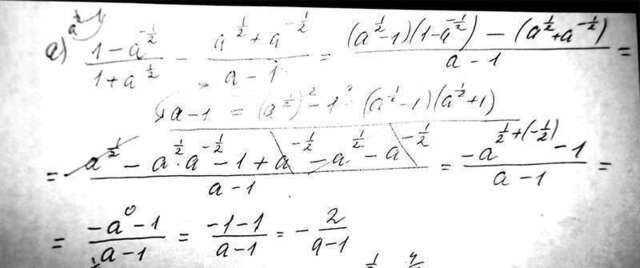 a^{\frac{1}{2}}-1
а) \frac{1-a^{-\frac{1}{2}}}{1+a^{\frac{1}{2}}} - \frac{a^{\frac{1}{2}}+a^{-\frac{1}{2}}}{a-1} = \frac{(a^{\frac{1}{2}}-1)(1-a^{-\frac{1}{2}})-(a^{\frac{1}{2}}+a^{-\frac{1}{2}})}{a-1} =
a-1 = (a^{\frac{1}{2}})^2-1^2 (a^{\frac{1}{2}}-1)(a^{\frac{1}{2}}+1)
= \frac{a^{\frac{1}{2}}-a^{\frac{1}{2}}·a^{-\frac{1}{2}}-1+a^{-\frac{1}{2}}-a^{\frac{1}{2}}-a^{-\frac{1}{2}}}{a-1} = \frac{-a^{\frac{1}{2}+(-\frac{1}{2})}-1}{a-1} =
= \frac{-a^0-1}{a-1} = \frac{-1-1}{a-1} = -\frac{2}{a-1}